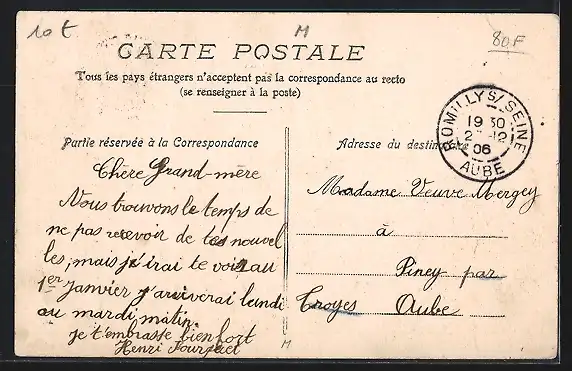 10 t
M
80F
CARTE POSTALE
Tous les pays étrangers n'acceptent pas la correspondance au recto
(se renseigner à la poste)
ROMILLY S/ SEINE
19 30
12
06
AUBE
Partie réservée à la Correspondance
Chère Grand-mère
Nous trouvons le temps de
ne pas recevoir de tes nouvel
les, mais j'irai te voir au
1er Janvier j'arriverai lundi
au mardi matin.
je t'embrasse bien fort
Henri
Adresse du destinataire
Madame Veuve Mergey
à
Piney par
Troyes Aube
M